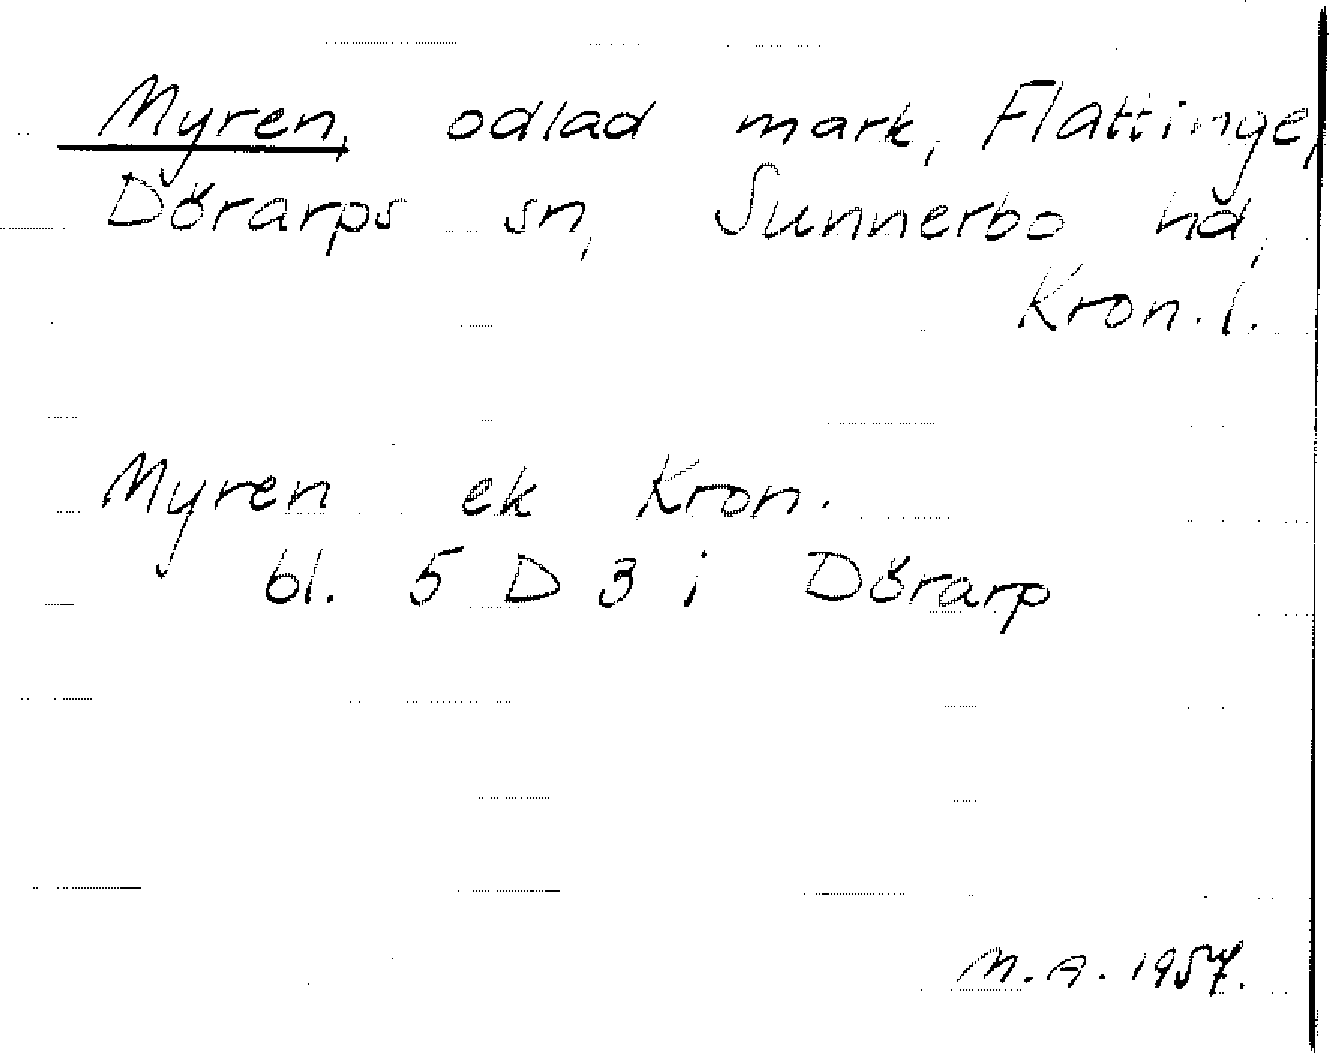 Myren, odlad mark, Flattinge,
Dörarps sn, Sunnerbo hd,
Kron. l.
Myren ek Kron.
bl. 5 D 3 i Dörarp
M. A. 1957.